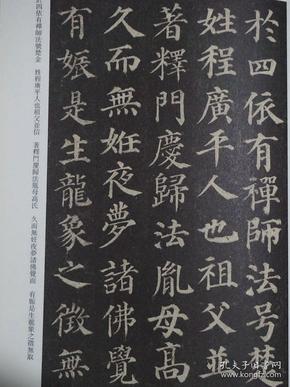 於四依有禪師法号楚
姓程廣平人也祖父並
著釋門慶歸法胤母高
久而無姙夜夢諸佛覺
有娠是生龍象之徵無
於四依有禪師法號楚金 姓程廣平人也祖父並信 著釋門慶歸法胤母高氏 久而無姙夜夢諸佛覺而 有娠是生龍象之徵無取